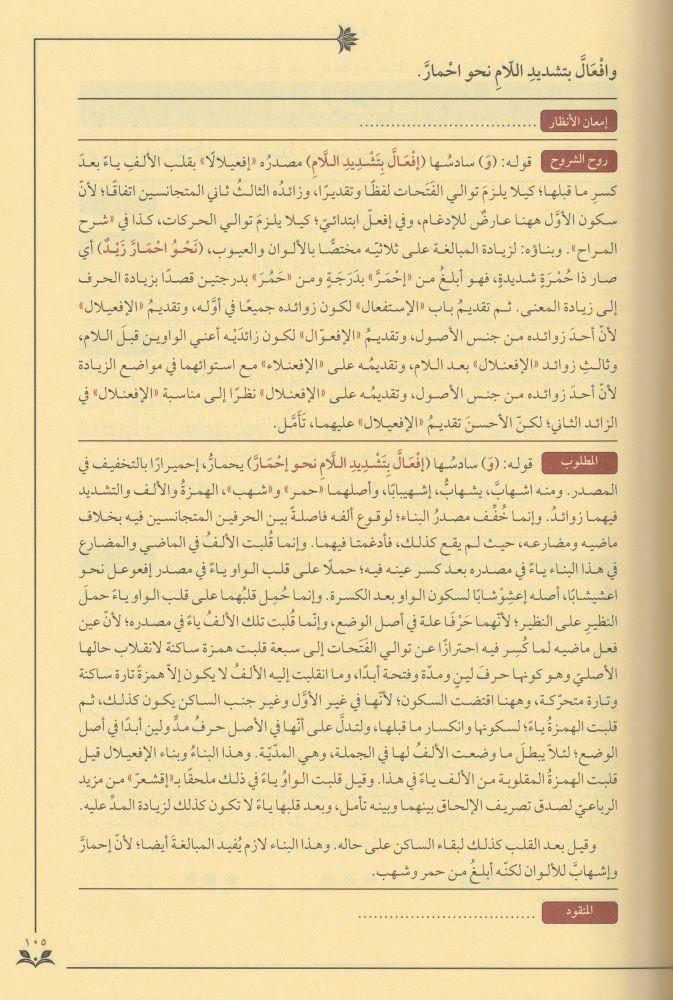 وافْعَالَّ بتشديدِ اللّامِ نحو احْمارَّ.
إمعان الأنظار ......................................
روح الشروح قوله: (وَ) سادسُها (إفْعَالَّ بِتَشْدِيدِ اللَّامِ) مصدرُه «إفعيلالًا» بقلب الألفِ ياءً بعدَ
كسرِ ما قبلها؛ كيلا يلزمَ توالي الفَتَحات لفظًا وتقديرًا، وزائدُه الثالثُ ثاني المتجانسين اتفاقًا؛ لأنّ
سكون الأوَّل ههنا عارضٌ للإدغام، وفي إفعلّ ابتدائيّ؛ كيلا يلزمَ توالي الحركات، كذا في «شرح
المراح». وبناؤه: لزيادة المبالغة على ثلاثيّه مختصًّا بالألوان والعيوب، (نَحْوُ احْمَارَّ زَيْدٌ) أي
صار ذا حُمْرَةٍ شديدةٍ، فهو أبلغُ من «إحْمَرَّ» بدَرَجَةٍ ومن «حَمُرَ» بدرجتين قصدًا بزيادة الحرف
إلى زيادة المعنى. ثم تقديمُ باب «الإستفعال» لكون زوائده جميعًا في أوَّله، وتقديمُ «الإفعيلال»
لأنّ أحدَ زوائده من جنس الأصول، وتقديمُ «الإفعوّال» لكون زائدَيْه أعني الواوين قبلَ اللام،
وثالثِ زوائد «الإفعنلال» بعد اللام، وتقديمُه على «الإفعنلاء» مع استوائهما في مواضع الزيادة
لأنّ أحدَ زوائده من جنس الأصول، وتقديمُه على «الإفعنلال» نظرًا إلى مناسبة «الإفعنلال» في
الزائد الثاني؛ لكنّ الأحسنَ تقديمُ «الإفعيلال» عليهما، تَأَمَّل.
المطلوب قوله: (وَ) سادسُها (إفْعَالَّ بِتَشْدِيدِ اللَّامِ نحو إحْمَارَّ) يحمارُّ، إحميرارًا بالتخفيف في
المصدر. ومنه اشهابَّ، يشهابُّ، إشهيبابًا، وأصلهما «حمر» و«شهب»، الهمزةُ والألف والتشديد
فيهما زوائدُ. وإنما خُفِّف مصدرُ البناء؛ لوقوع ألفه فاصلةً بين الحرفين المتجانسين فيه بخلاف
ماضيه ومضارعه، حيث لم يقع كذلك، فأدغمتا فيهما. وإنما قُلبت الألفُ في الماضي والمضارع
في هذا البناء ياءً في مصدره بعد كسر عينه فيه؛ حملًا على قلب الواو ياءً في مصدر إفعوعل نحو
اعشيشابًا، أصله إعشِوْشابًا لسكون الواو بعد الكسرة. وإنما حُمِل قلبُهما على قلب الواو ياءً حملَ
النظيرِ على النظير؛ لأنّهما حَرْفَا علة في أصل الوضع، وإنّما قُلبت تلك الألفُ ياءً في مصدره؛ لأنّ عين
فعل ماضيه لما كُسِر فيه احترازًا عن توالي الفَتَحات إلى سبعة قلبت همزة ساكنة لانقلاب حالها
الأصليّ وهو كونها حرفَ لينٍ ومدّة وفتحة أبدًا، وما انقلبت إليه الألفُ لا يكون إلاّ همزةً تارة ساكنة
وتارة متحرّكة، وههنا اقتضت السكون؛ لأنّها في غير الأوَّل وغير جنب الساكن يكون كذلك، ثم
قلبت الهمزةُ ياءً؛ لسكونها وانكسار ما قبلها، ولتدلَّ على أنّها في الأصل حرفُ مدٍّ ولين أبدًا في أصل
الوضع؛ لئلاّ يبطلَ ما وضعت الألفُ لها في الجملة، وهي المدّيّة. وهذا البناءُ وبناء الإفعيلال قيل
قلبت الهمزةُ المقلوبة من الألف ياءً في هذا. وقيل قلبت الواوُ ياءً في ذلك ملحقًا بـ«إقشعرّ» من مزيد
الرباعيّ لصدق تصريف الإلحاق بينهما وبينه تأمل، وبعد قلبها ياءً لا تكون كذلك لزيادة المدِّ عليه.
وقيل بعد القلب كذلك لبقاء الساكن على حاله. وهذا البناء لازم يُفيد المبالغةَ أيضا؛ لأنّ إحمارَّ
وإشهابَّ للألوان لكنّه أبلغُ من حمر وشهب.
المنقود ......................................
١٠٥